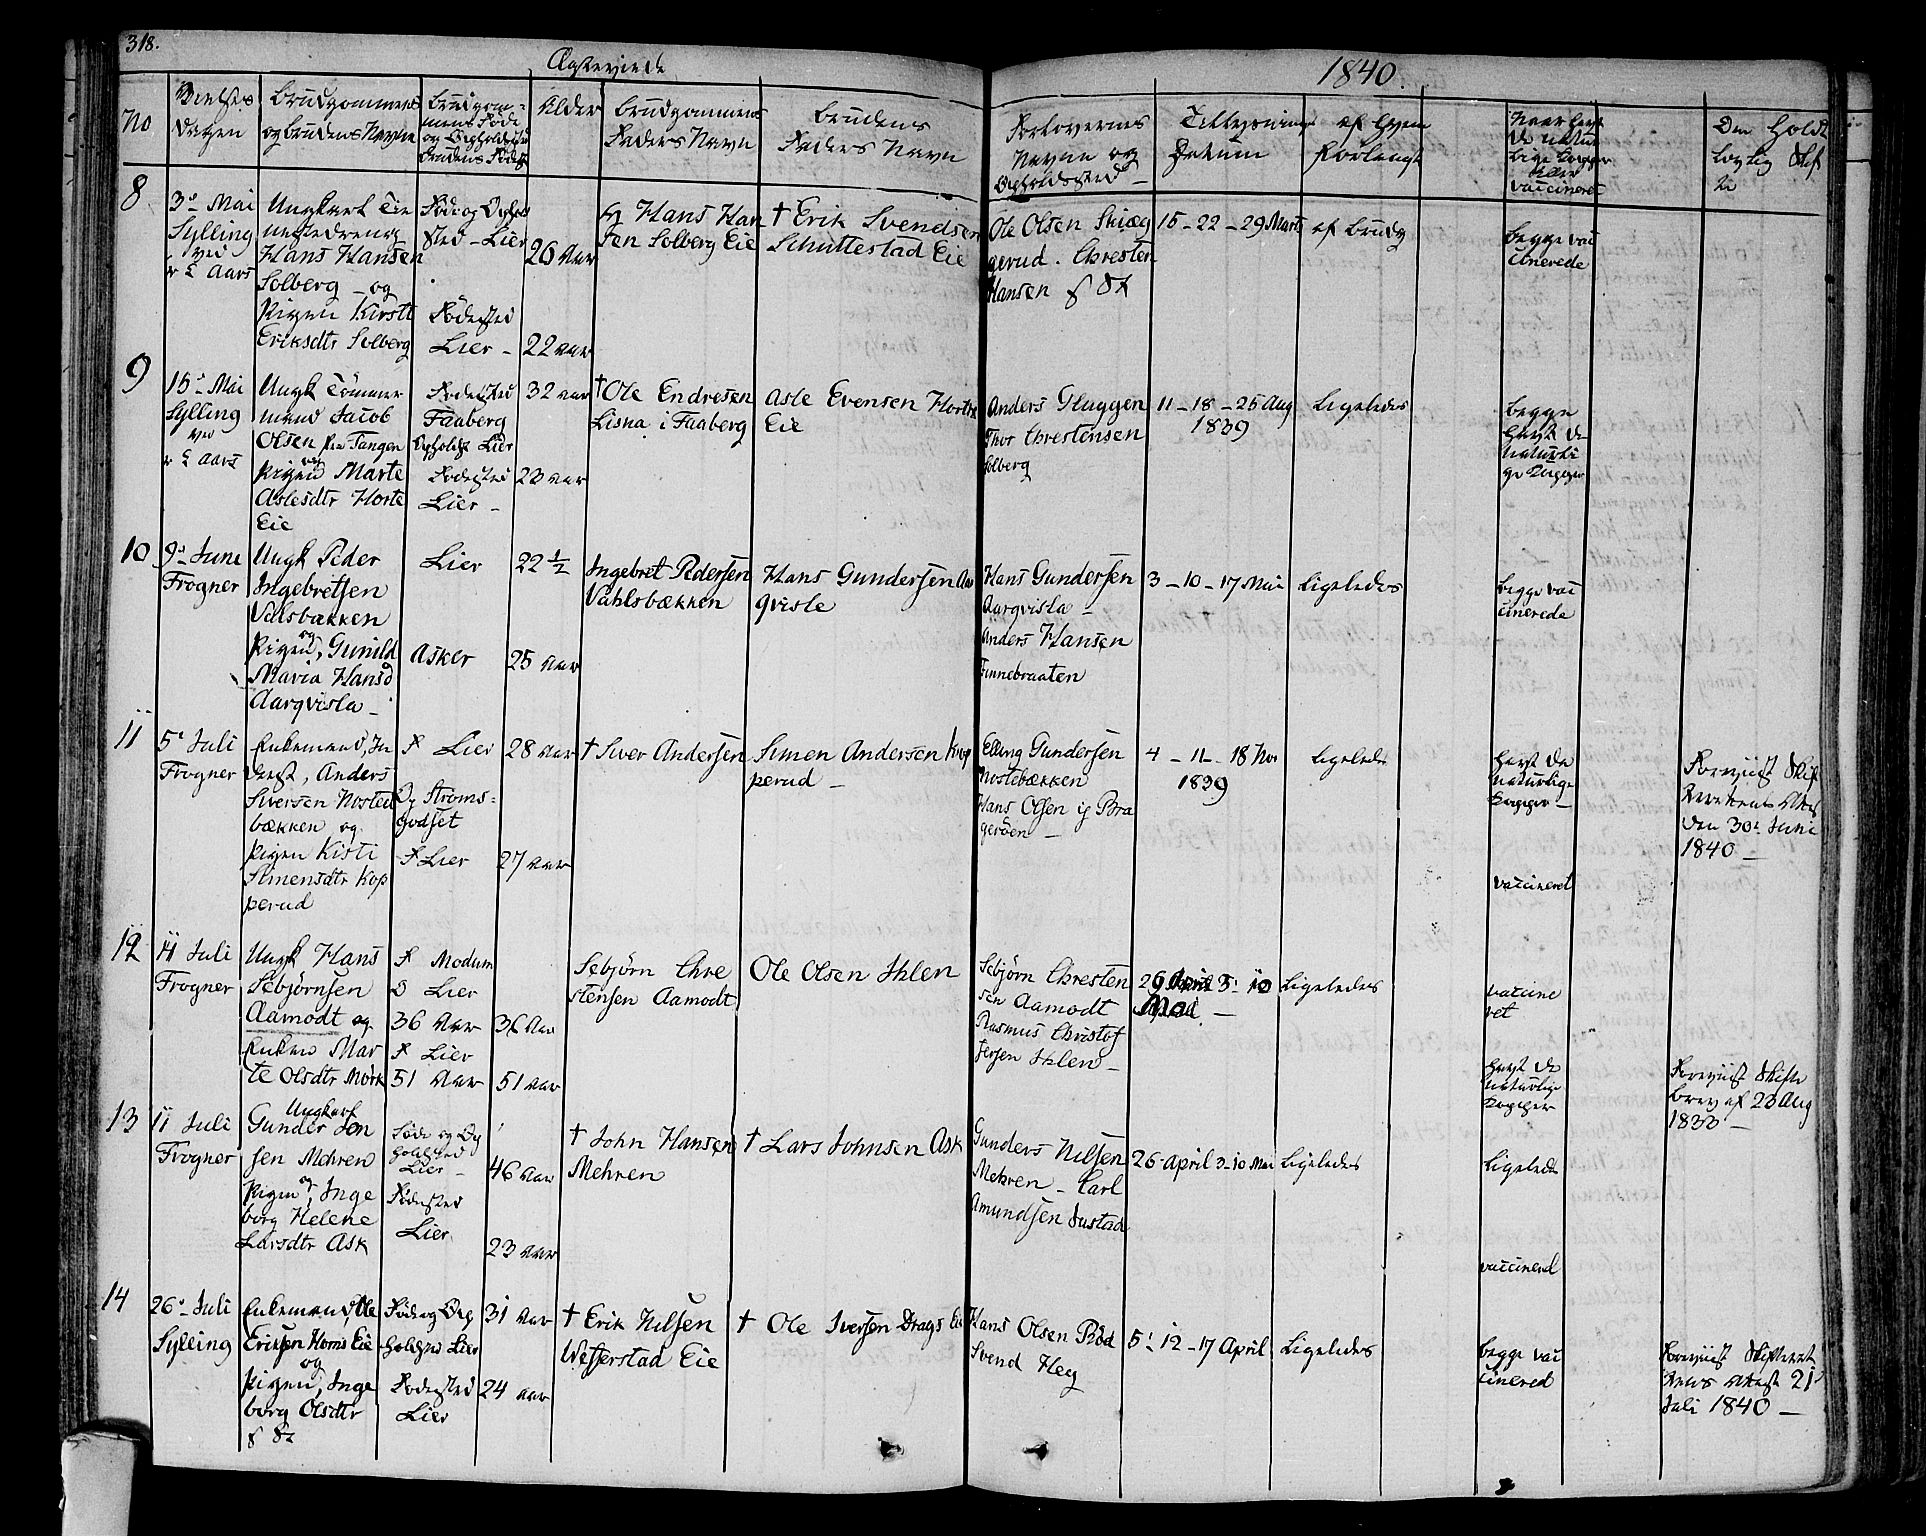 318.
Ægteviede
1840.
No
Vielses
Dagen
Brudgommens
og Brudens Navne
Brudgom-
mens Føde
og Opholdsted
Brudens Føde
Alder
Brudgommens
Faders Navn
Brudens
Faders Navn
Forlovernes
Navne og
Opholdsted
Tillysnings
Datum
af hvem
Forlangt
Naar havt
de natur
lige Kopper
eller
vaccineret
Om holdt
lovlig Skif
te
8
3de Mai
Sylling
ved
r C Aars
Ungkarl Tie
nestedreng
Hans Hansen
Solberg - og
Pigen Kirsti
Eriksdtr Solberg
Føde og Opholds
sted - Lier
Fødested
Lier -
26 Aar
22 aar
Hans Han
sen Solberg Eie
† Erik Svendsen
Schuttestad Eie
Ole Olsen Skiæg
gerud. Christen
Hansen
15 - 22 - 29 Marts
af Brudg
begge vac
cinerede
9
15de Mai
Sylling
ved
r C Aars
Ungk Tømmer
mand Jacob
Olsen fra Tangen
og
Pigen Marte
Aslesdtr Horte
Eie
Fødested
Faaberg
Opholdst Lier
Fødested
Lier -
32 aar
23 aar
† Ole Endresen
Lisna i Faaberg
Asle Evensen Horte
Eie
Anders Gluggen
Thor Christensen
Solberg
11 - 18 - 25 Aug
1839
Ligeledes
begge
havt de
naturli
ge Kopper
10
9de June
Frogner
Ungk Peder
Ingebretsen
Valsbækken
og
Pigen, Gunild
Maria Hansd
Aarqvisla -
Lier
Asker
22 ½
25 Aar
Ingebret Pedersen
Vahlsbækken
Hans Gundersen Aar
qvisle
Hans Gundersen
Aarqvisla -
Anders Hansen
Finnebraaten
3 - 10 - 17 Mai
Ligeledes
begge vac
cinerede
11
5te Juli
Frogner
Enkemand, In
derst, Anders
Siversen Nosted
bækken og
Pigen Kisti
Simensdtr Kop
perud
F Lier
Op Stroms-
godset
F Lier
28 aar
27 aar
† Siver Andersen
Simen Andersen Kop
perud -
Elling Gundersen
Nostebækken
Hans Olsen ig Bra
gerøen -
4 - 11 - 18 Nov
1839
Ligeledes
havt de
naturlige
Kopper -
vaccineret
Foreviist Skif
Rettens Attest
den 30te Juni
1840 -
12
11 Juli
Frogner
Ungk Hans
Sebjørnsen
Aamodt og
Enken Mar
te Olsdtr Mørk
F Modum
O Lier
36 Aar
F Lier
51 Aar
36 Aar
51 aar
Sebjørn Chre
stensen Aamodt
Ole Olsen Ihlen
Sebjørn Christen
sen Aamodt
Rasmus Christof
fersen Ihlen -
26 April 3 - 10
Mai -
Ligeledes
vaccine
ret
havt de
naturlige
Kopper
Foreviist Skifte
brev af 23 Aug
1833 -
13
11 Juli
Frogner
Ungkarl
Gunder Jon
sen Mehren
og
Pigen, Inge
borg Helene
Larsdtr Ask
Føde og Op
holdsted
Lier -
Fødested
Lier
46 Aar
23 Aar
† John Hansen
Mehren
† Lars Johnsen Ask
Gunders Nilsen
Mehren - Carl
Amundsen Justad
26 April 3 - 10 Mai
Ligeledes
Ligelede
vaccinered
14
26de Juli
Sylling
Enkemand, Ole
Eriksen Horns Eie
og
Pigen, Inge
borg Olsdtr
Føde og Op
holdsted Lier
Fødested
Lier
31 Aar
24 aar
† Erik Nilsen
Weferstad Eie
† Ole Iversen Drags Eie
Hans Olsen Rød
Svend Heg
5 - 12 - 17 April
Ligeledes
begge vac
cinered
Foreviist Skifteret
tens Attest 21
Juli 1840 -